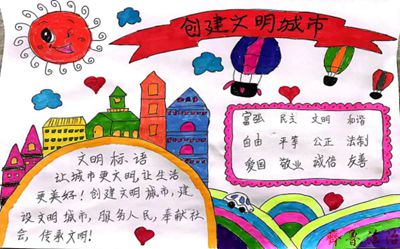 创建文明城市
富强 民主 文明 和谐
自由 平等 公正 法制
爱国 敬业 诚信 友善
文明标语
让城市更文明,让生活
更美好!创建文明城市,建
设文明城市,服务人民,奉献社
会,传承文明!